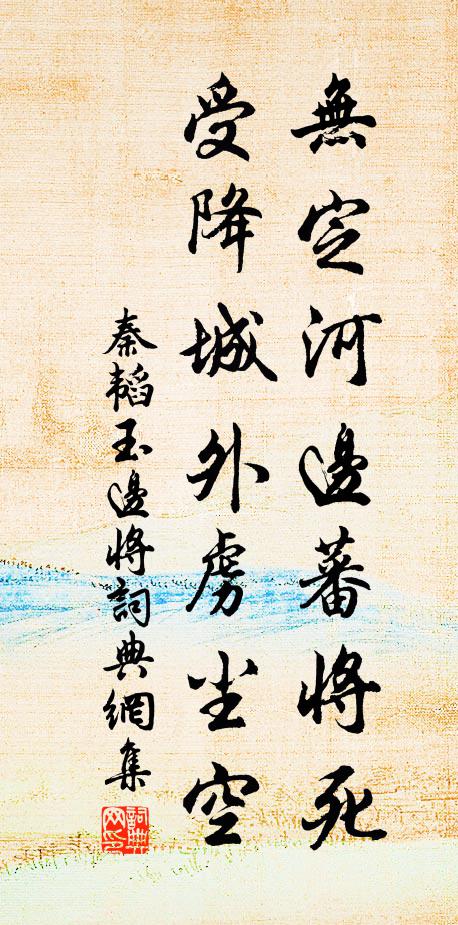 無定河邊蕃將死
受降城外虜尘空
秦韬玉邊將詞典網集